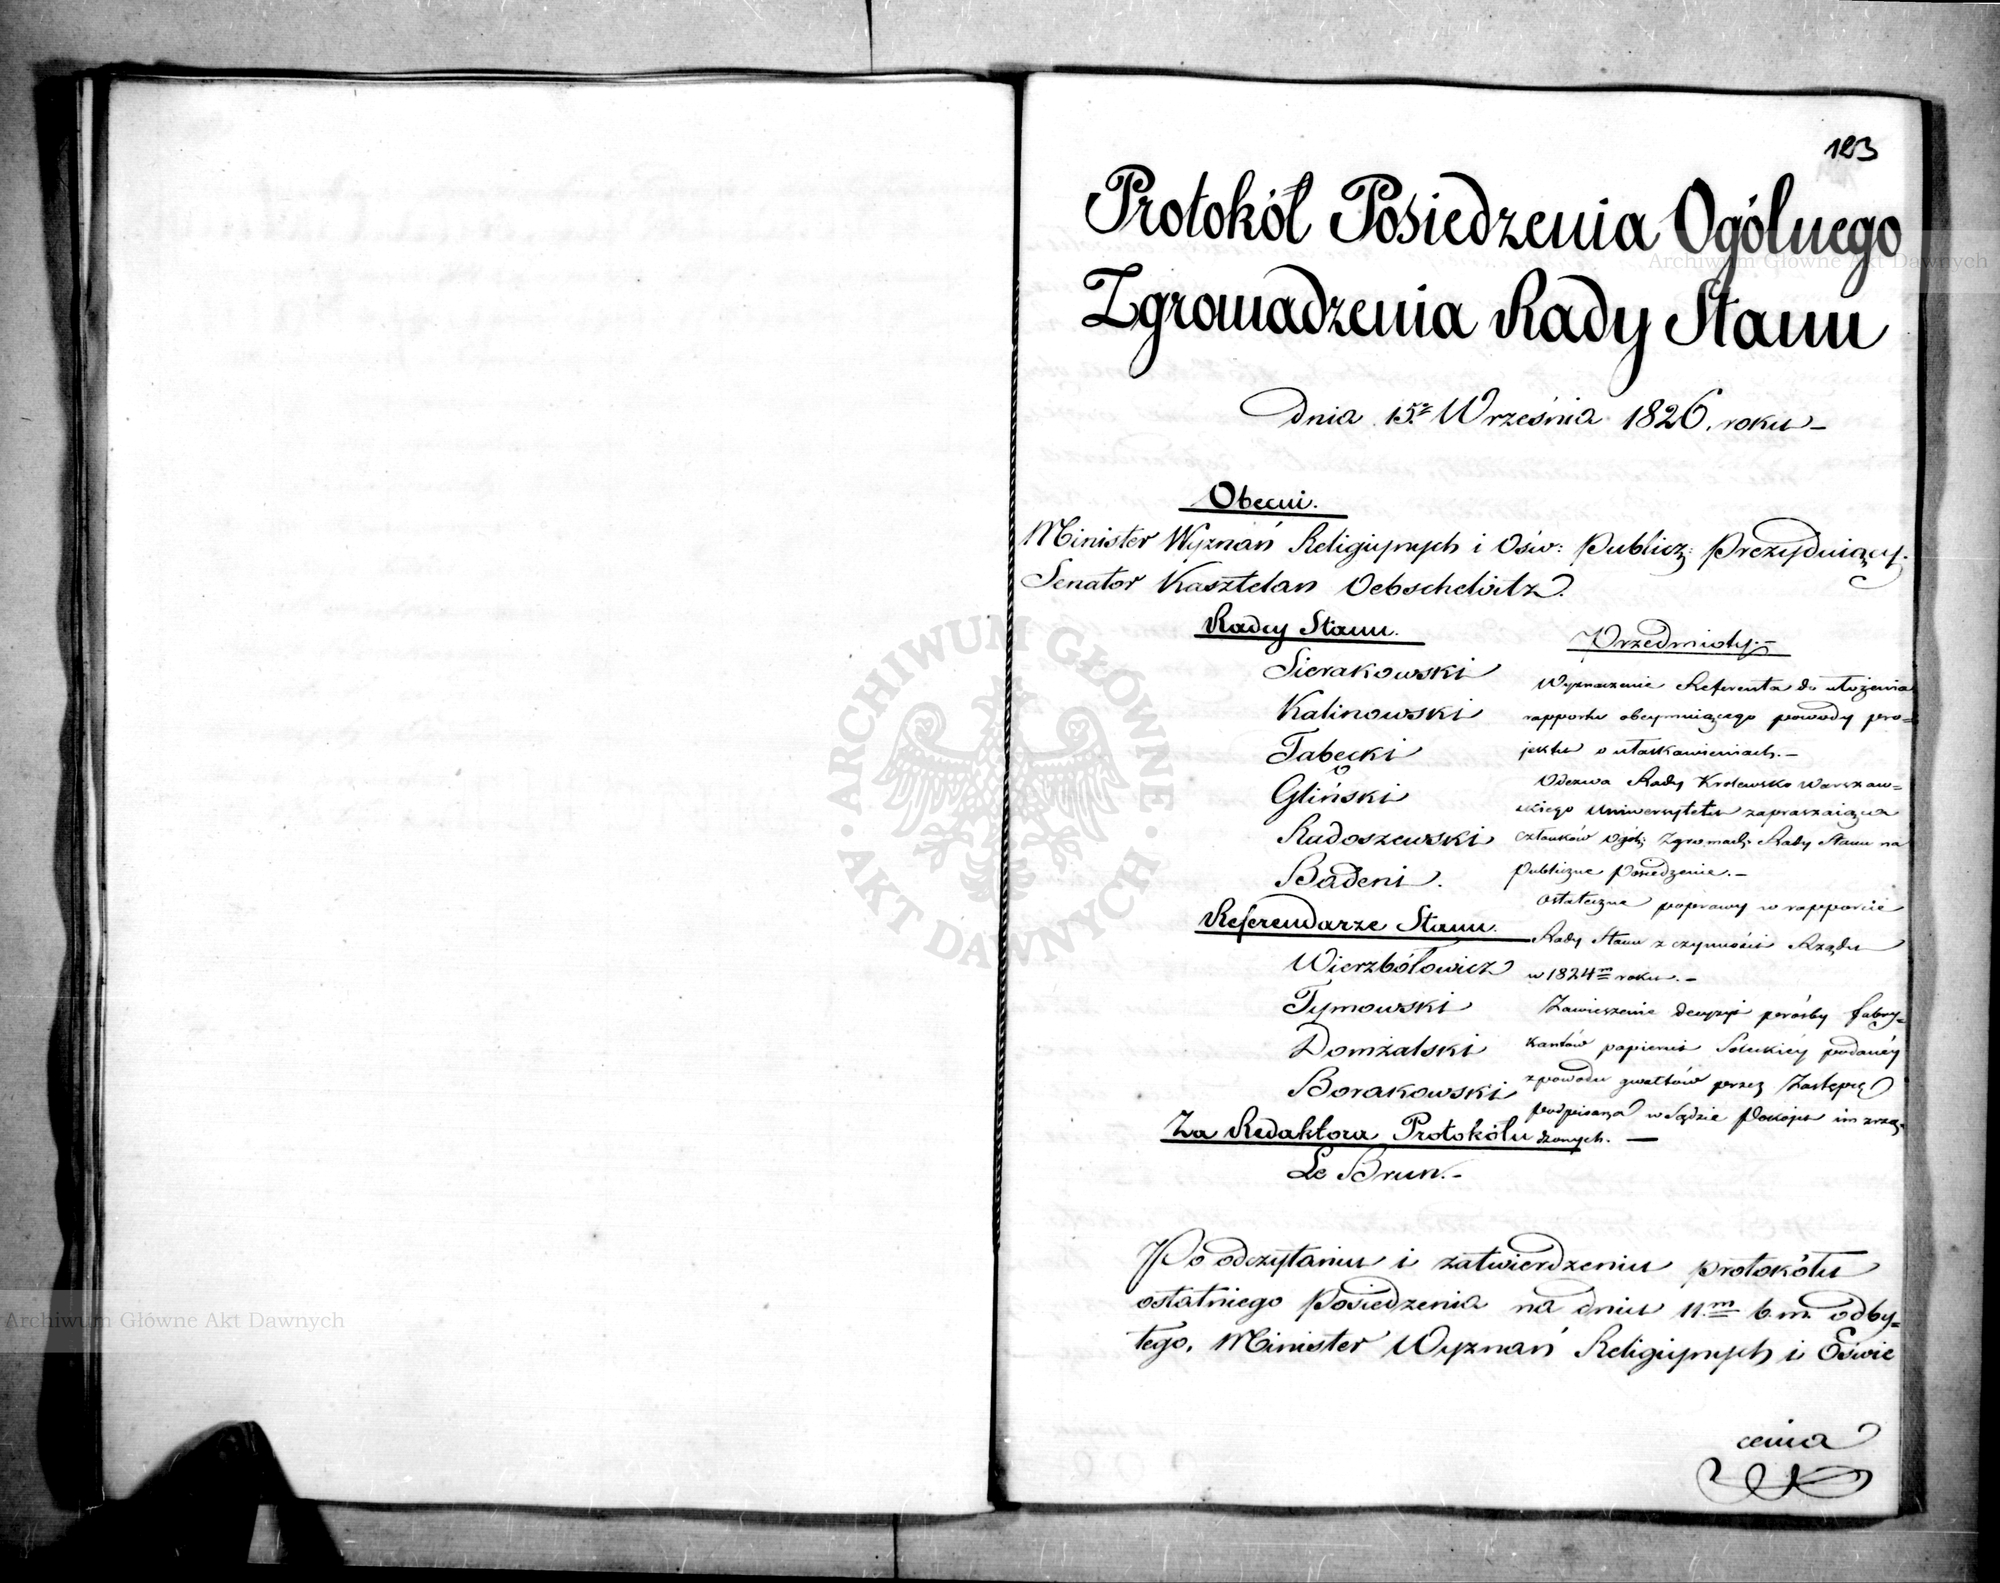 123
Protokół Posiedzenia Ogólnego
Zgromadzenia Rady Stanu
dnia 15. Września 1826. roku –
Obecni.
Minister Wyznań Religiynych i Ośw: Publicz: Prezyduiący.
Senator Kasztelan Oebschelwitz.
Radcy Stanu.
Sierakowski
Kalinowski
Tabęcki
Gliński
Radoszewski
Badeni.
Referendarze Stanu.
Wierzbółowicz
Tymowski
Domżalski
Borakowski
Za Redaktora Protokółu
Le Brun. –
Przedmioty:
Wyznaczenie Referenta do ułożenia
rapportu obeymuiącego powody pro=
jektu o ułaskawieniach. –
Odezwa Rady Krolewsko Warszaw=
skiego Uniwersytetu zapraszaiąca
członków Ogól: Zgromadz: Rady Stanu na
Publiczne Posiedzenie. –
Ostateczne poprawy w rapporcie
Rady Stanu z czynności Rządu
w 1824m roku. –
Zawieszenie decyzyi prośby fabry=
kantów papieru Soleckiéy podanéy
z powodu gwałtów przez Zastępcę
Podpisarza w Sądzie Pokoju im zrzą=
dzonych. –
Po odczytaniu i zatwierdzeniu protokółu
ostatniego Posiedzenia na dniu 11.m b.m. odby=
tego, Minister Wyznań Religiynych i Oświe
cenia
Archiwum Główne Akt Dawnych
Archiwum Główne Akt Dawnych
ARCHIWUM GŁÓWNE
AKT DAWNYCH